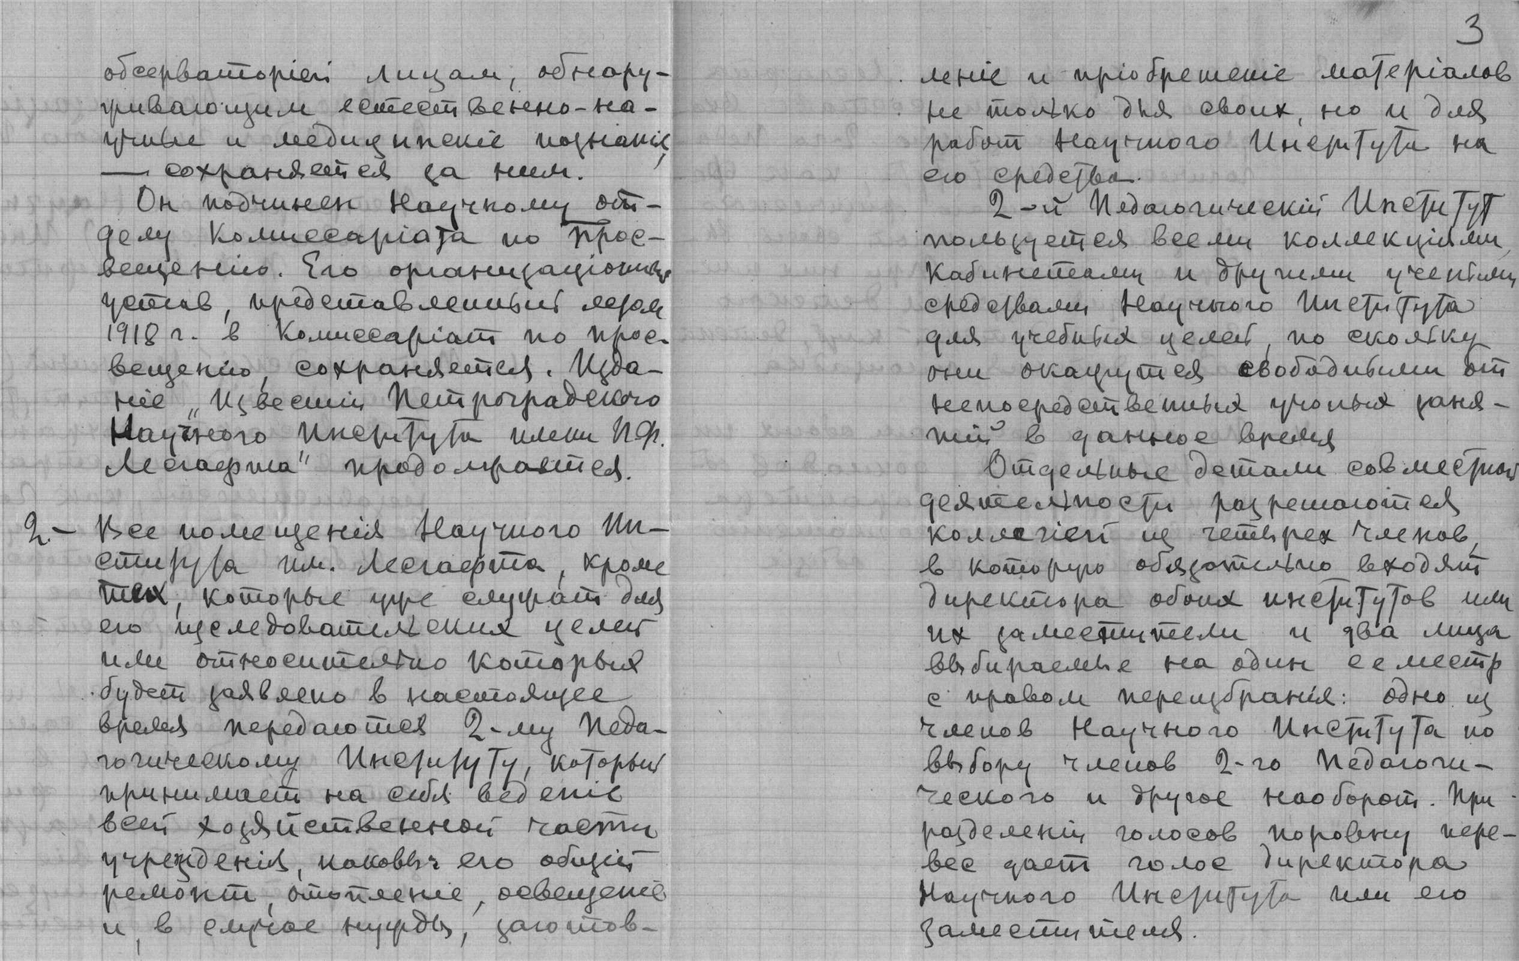 обсерваторіей лицам, обнару-
живающим естественно-на-
учные и медицинскіе познанія,
— сохраняется за ним.
Он подчинен Научному от-
делу Комиссаріата по прос-
вещенію. Его организаціонный
устав, представленный летом
1918 г. в Комиссаріат по прос-
вещенію, сохраняется. Изда-
ніе „Известій Петроградского
Научного Института имени П.Ф.
Лесгафта" продолжается.
2.- Все помещенія Научного Ин-
ститута им. Лесгафта, кроме
тех, которые уже служат для
его изследовательских целей
или относительно которых
будет заявлено в настоящее
время передаются 2-му Педа-
гогическому Институту, который
принимает на себя веденіе
всей хозяйственной части
учрежденія, каковы: его общій
ремонт, отопленіе, освещеніе
и, в случае нужды, заготов-
3
леніе и пріобретеніе матеріалов
не только для своих, но и для
работ Научного Института на
его средства.
2-й Педагогическій Институт
пользуется всеми коллекціями,
кабинетами и другими учеными
средствами Научного Института
для учебных целей, по скольку
они окажутся свободными от
непосредственных ученых заня-
тій в данное время
Отдельные детали совместной
деятельности разрешаются
коллегіей из четырех членов,
в которую обязательно входят
директора обоих институтов или
их заместители и два лица
выбираемые на один семестр
с правом переизбранія: одно из
членов Научного Института по
выбору членов 2-го Педагоги-
ческого и другое наоборот. При
разделеніи голосов поровну пере-
вес дает голос директора
Научного Института или его
заместителя.